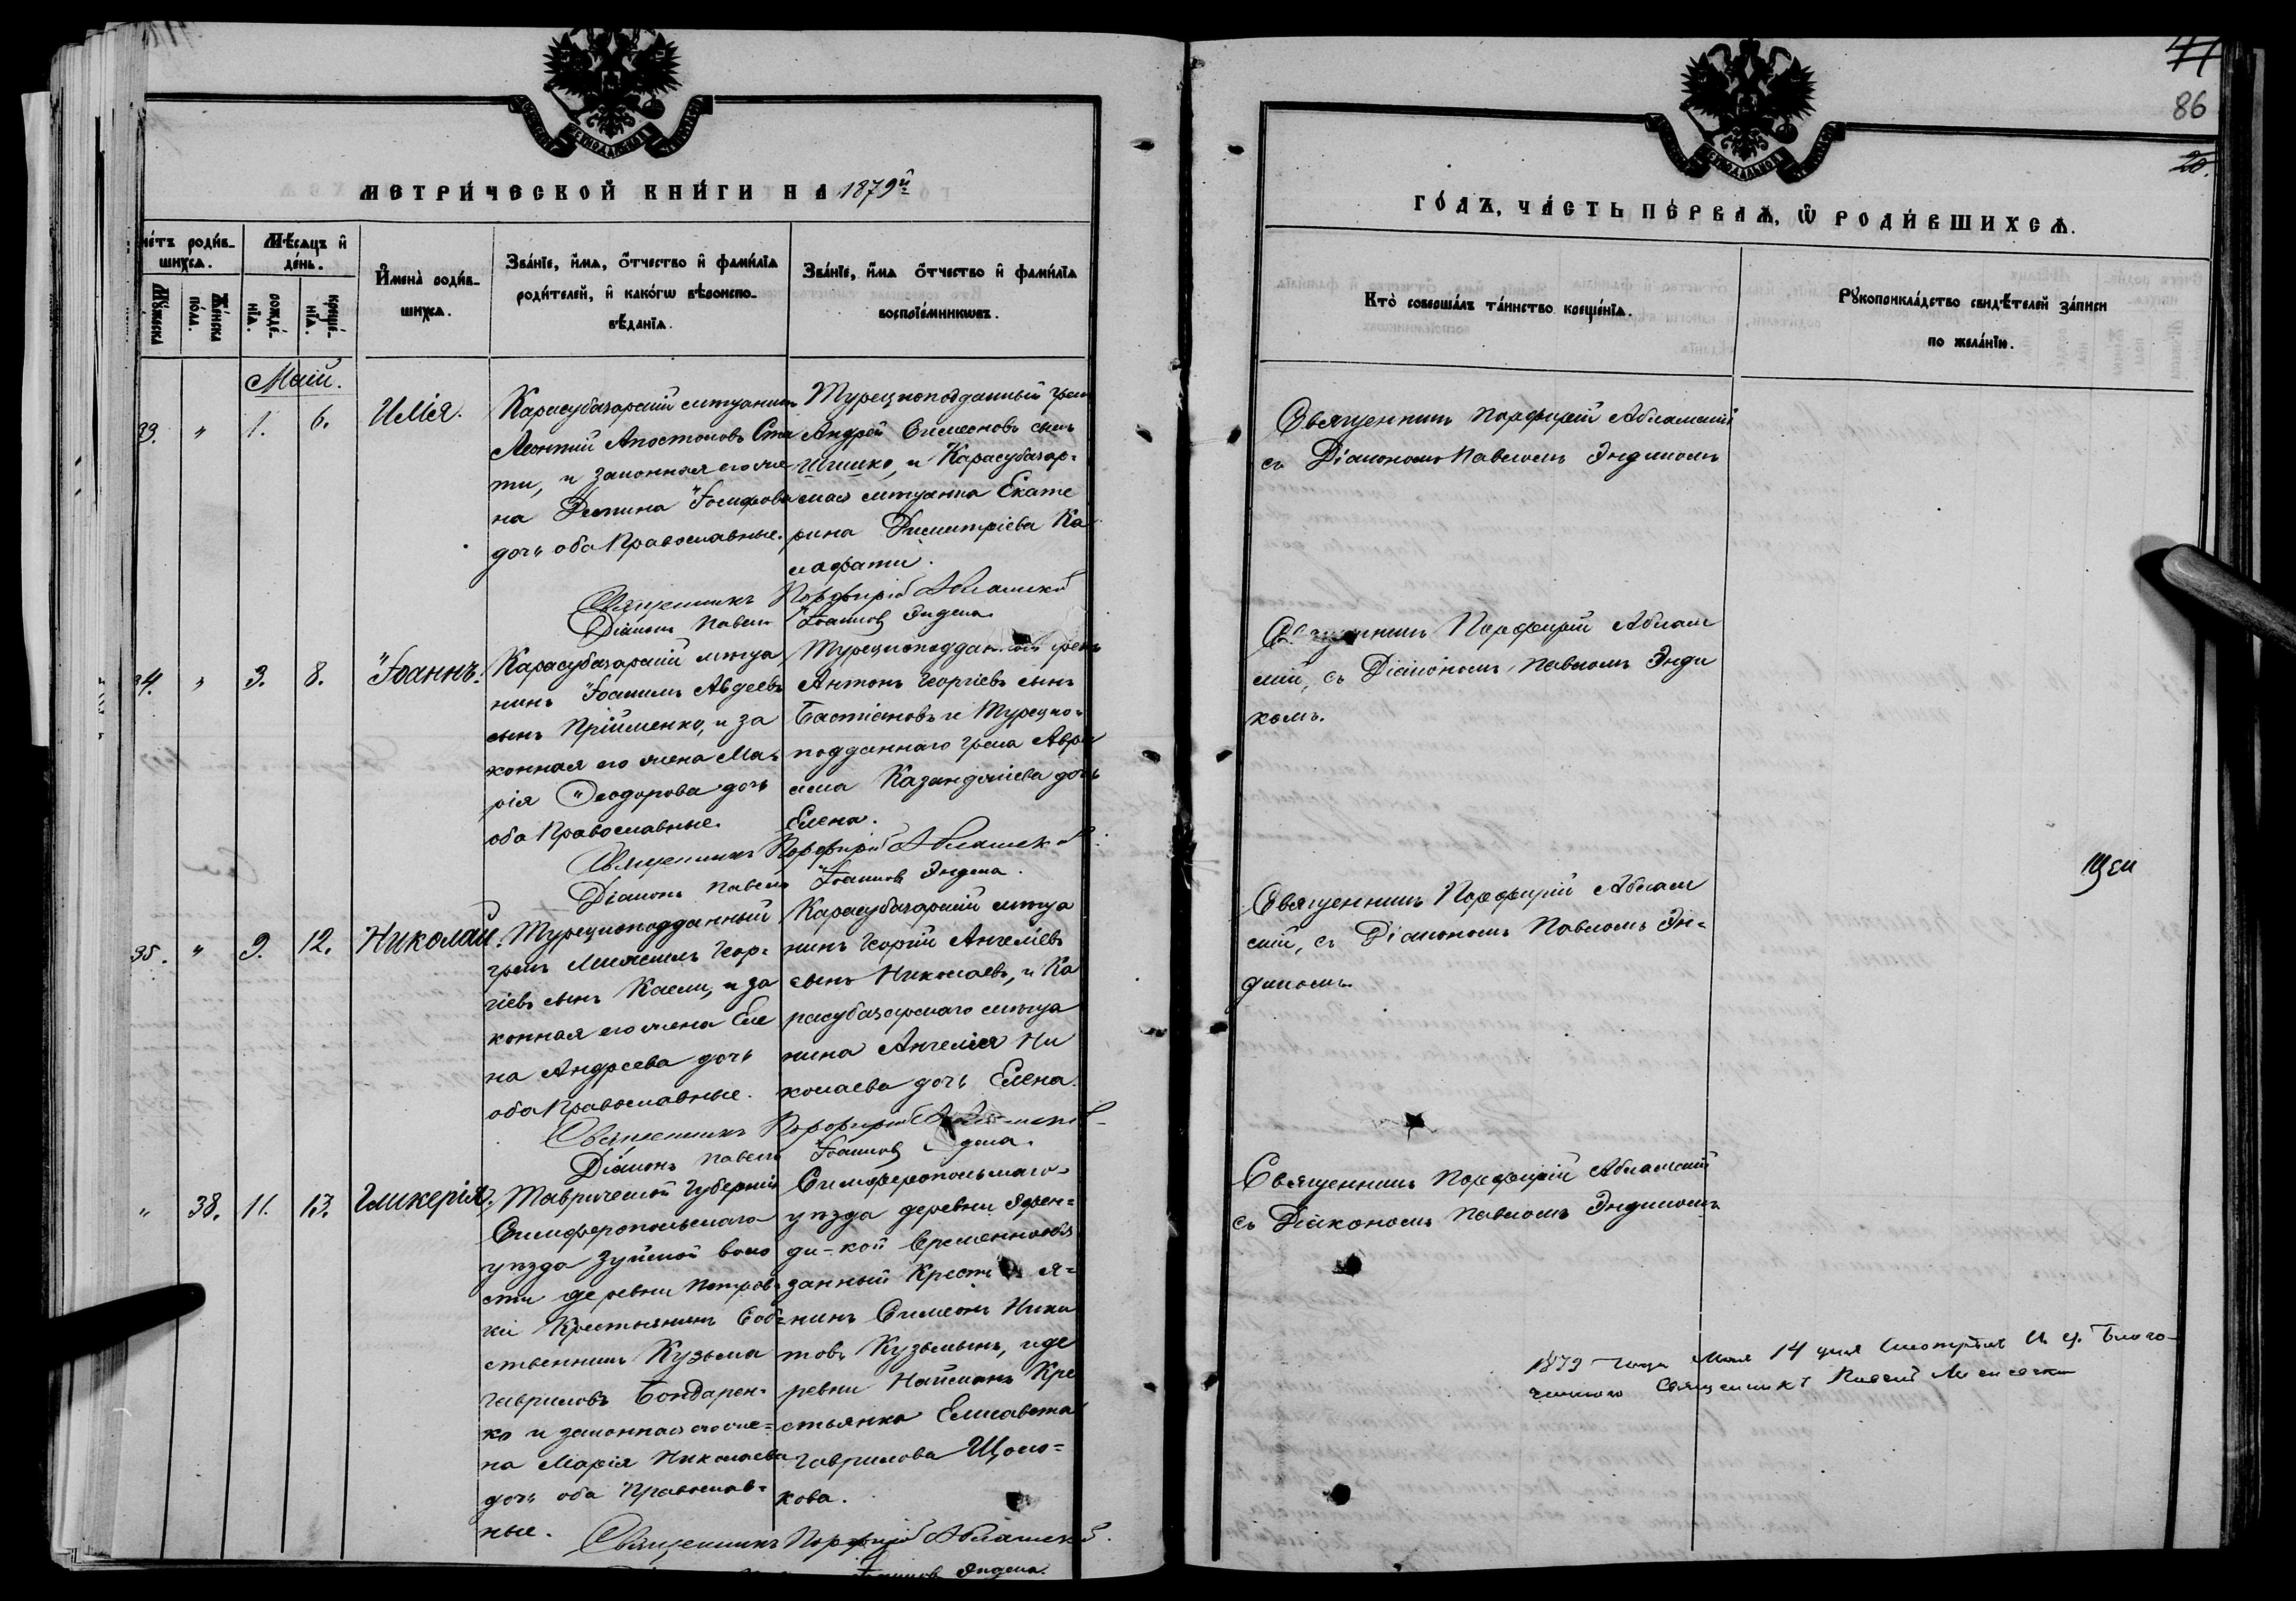 МЕТРИЧЕСКОЙ КНИГИ НА 1879й
Счетъ родив-
шихся.
Мужеска
Женска
пола.
Мѣсяцъ и
день.
рожде-
нія.
креще-
нія.
Имена родив-
шихся.
Званіе, имя, отчество и фамилія
родителей, и какогω вѣроиспо-
вѣданія.
Званіе, имя отчество и фамилія
воспріемниковъ.
Маій.
33.
"
1.
6.
Илія.
Карасубазарскій мѣщанинъ
Леонтій Апостоловъ
и законная его же-
на Деспина Іосифова
дочь оба Православные.
Турецкоподданный грекъ
Андрей Симеоновъ сынъ
и Карасубазар-
ская мѣщанка Екате
рина Димитріева Ка
лафати.
Священникъ Порфирій Абламскій
Діаконъ Павелъ Іоанновъ Эндека
34.
"
3.
8.
Іоаннъ.
Карасубазарскій мѣща
нинъ Іоакимъ Авдеевъ
сынъ Пріймленко, и за
конная его жена Ма-
рія Ѳеодорова дочь
оба Православные.
Турецкоподданный грекъ
Антонъ Георгіевъ сынъ
Бастіановъ и Турецко-
подданнаго грека Авра
ама Казанджіева дочь
Елена.
Священникъ Порфирій Абламскій
Діаконъ Павелъ Іоанновъ Эндека.
35.
"
9.
12.
Николай.
Турецкоподданный
грекъ Михаилъ Геор-
гіевъ сынъ и за
конная его жена Еле
на Андреева дочь
оба Православные.
Карасубазарскій мѣща
нинъ Георгій Ангеліевъ
сынъ Николаевъ, и Ка
расубазарскаго мѣща
нина Ангелія Ни
колаева дочь Елена.
Священникъ Порфирій
Діаконъ Павелъ Іоанновъ
"
38.
11.
13.
Гликерія.
Таврической Губерніи
Симферопольскаго
уѣзда Зуйской воло
сти деревни Петров-
ки Крестьянинъ Соб-
ственникъ Кузьма
Гавриловъ Бондарен-
ко и законная его же-
на Марія Николаева
дочь оба Православ-
ные.
Симферопольскаго
уѣзда деревни Эфен-
ди-кой временнообя
занный Крестья-
нинъ Симеонъ Ники
товъ Кузьминъ, и де
ревни Найманъ Кре
стьянка Елисавета
Гаврилова Щоло-
кова.
Священникъ Порфирій Абламскій.
Іоанновъ Эндека.
77
86
20.
ГОДЪ, ЧАСТЬ ПЕРВАЯ, Ѿ РОДИВШИХСЯ.
Кто совершалъ таинство крещенія.
Рукоприкладство свидѣтелей записи
по желанію.
Священникъ Порфирій Абламскій
съ Діакономъ Павломъ Эндикомъ
Священникъ Порфирій Аблам
скій, съ Діакономъ Павломъ Энди
комъ.
Священникъ Порфирій Аблам
скій, съ Діакономъ Павломъ Эн-
дикомъ
Священникъ Порфирій Абламскій
съ Діакономъ Павломъ Эндикомъ
1879 года Мая 14 дня смотрѣлъ И. д. Благо-
чиннаго Священникъ